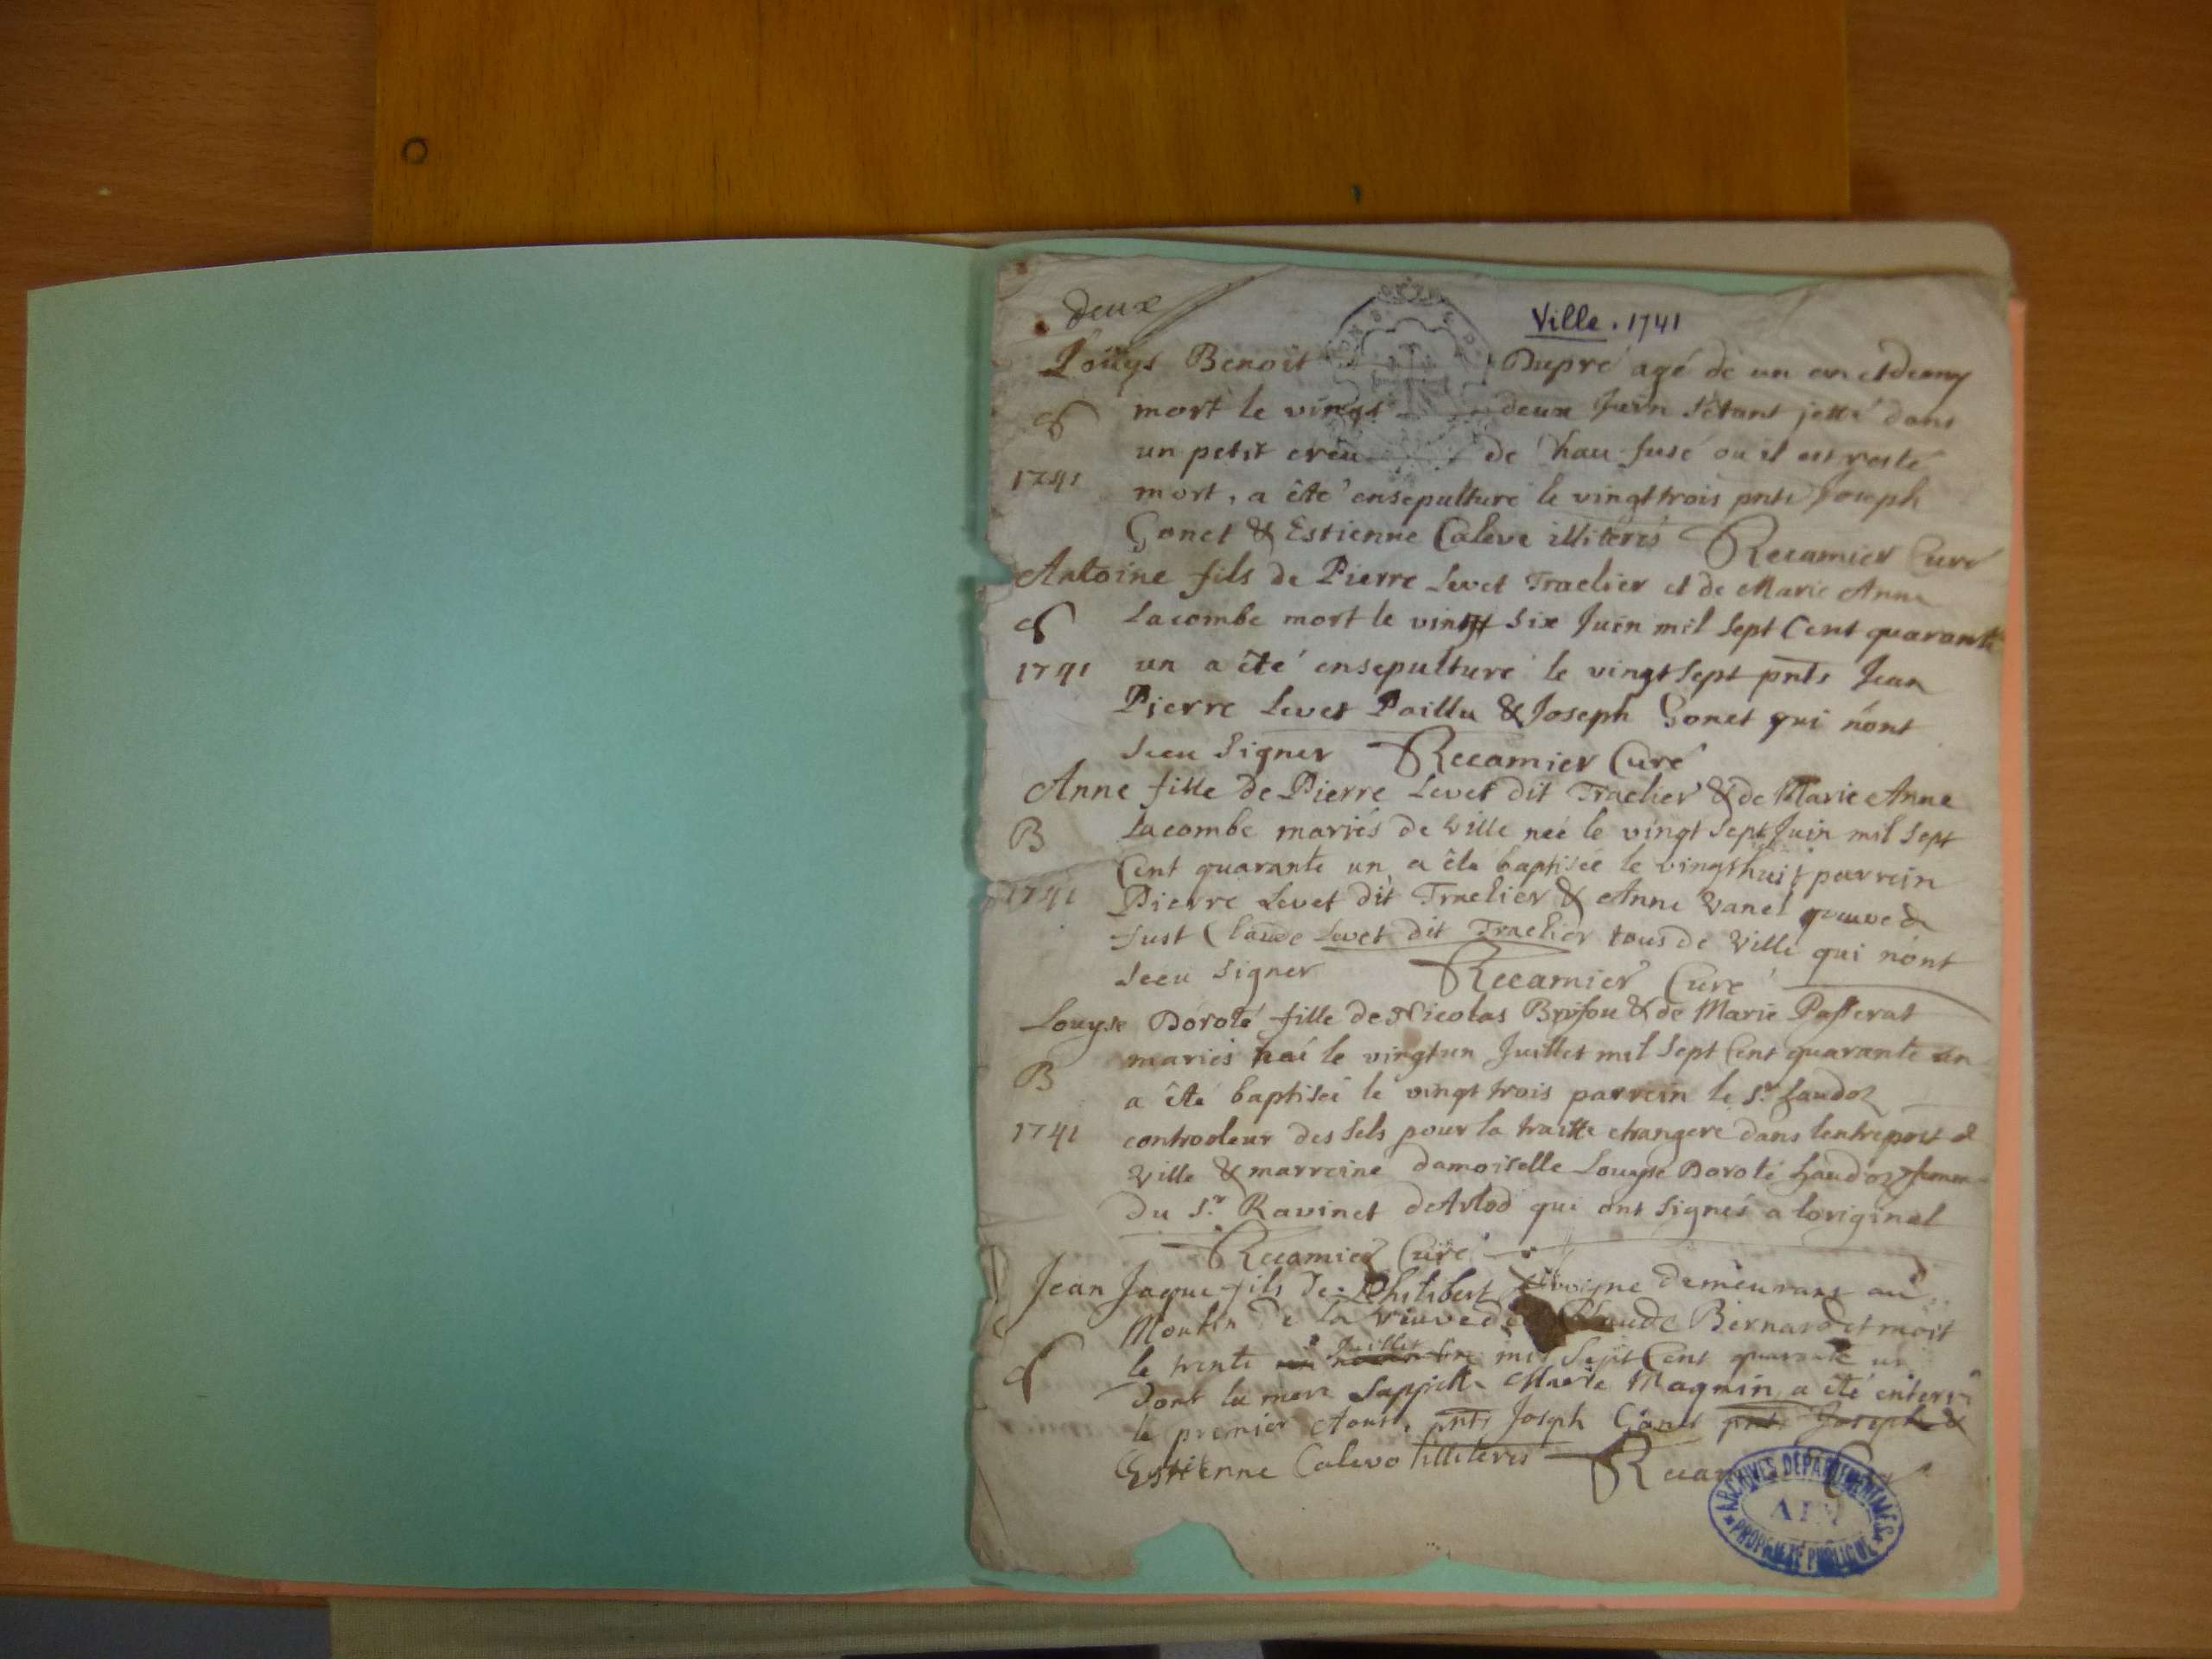 deux
Ville . 1741
Louys Benoit Dupré agé de un an et demy
mort le vingt deux Juin s'étant jetté dans
un petit creu de chau fusé ou il est resté
1741
mort, a êté ensepulturé le vingt trois pnts Joseph
Gonet & Estienne Caleve illiterés Recamier Curé
Antoine fils de Pierre Levet Traclier et de Marie Anne
Lacombe mort le vingt six Juin mil sept Cent quarante
1741
un a êté ensepulturé le vingt sept pnts Jean
Pierre Levet Paillu & Joseph Gonet qui n'ont
sceu signer Recamier Curé
Anne fille de Pierre Levet dit Traclier & de Marie Anne
B
Lacombe mariés de Ville neé le vingt sept Juin mil sept
Cent quarante un, a êté baptisée le vingt huit parrein
1741
Pierre Levet dit Traclier & Anne Vanel
Just Claude Levet dit Traclier tous de Ville qui n'ont
sceu signer Recamier Curé
Louyse Doroté fille de Nicolas & de Marie Passerat
B
mariés le vingt un Juillet mil sept Cent quarante un
a êté baptiseé le vingt trois parrein le Sr Landoz
1741
controoleur des sels pour la traitte etrangere dans lentrepost d
Ville & marreine damoiselle Louyse Doroté Landoz femme
du Sr Ravinet dArlod qui ont signés a loriginal
Recamier Curé
Jean Jaque fils de Philibert demeurant au
Moulin de la veuve de Claude Bernard et mort
le trente Juillet mil sept Cent quarante un
dont la mere sappelle Marie Magnin, a êté enterré
le premier Aoust, pnts Joseph Gonet pnts Joseph &
Estienne Calevo illiterés
ARCHIVES DEPARTEMENTALES
AIN
PROPRIETE PUBLIQUE